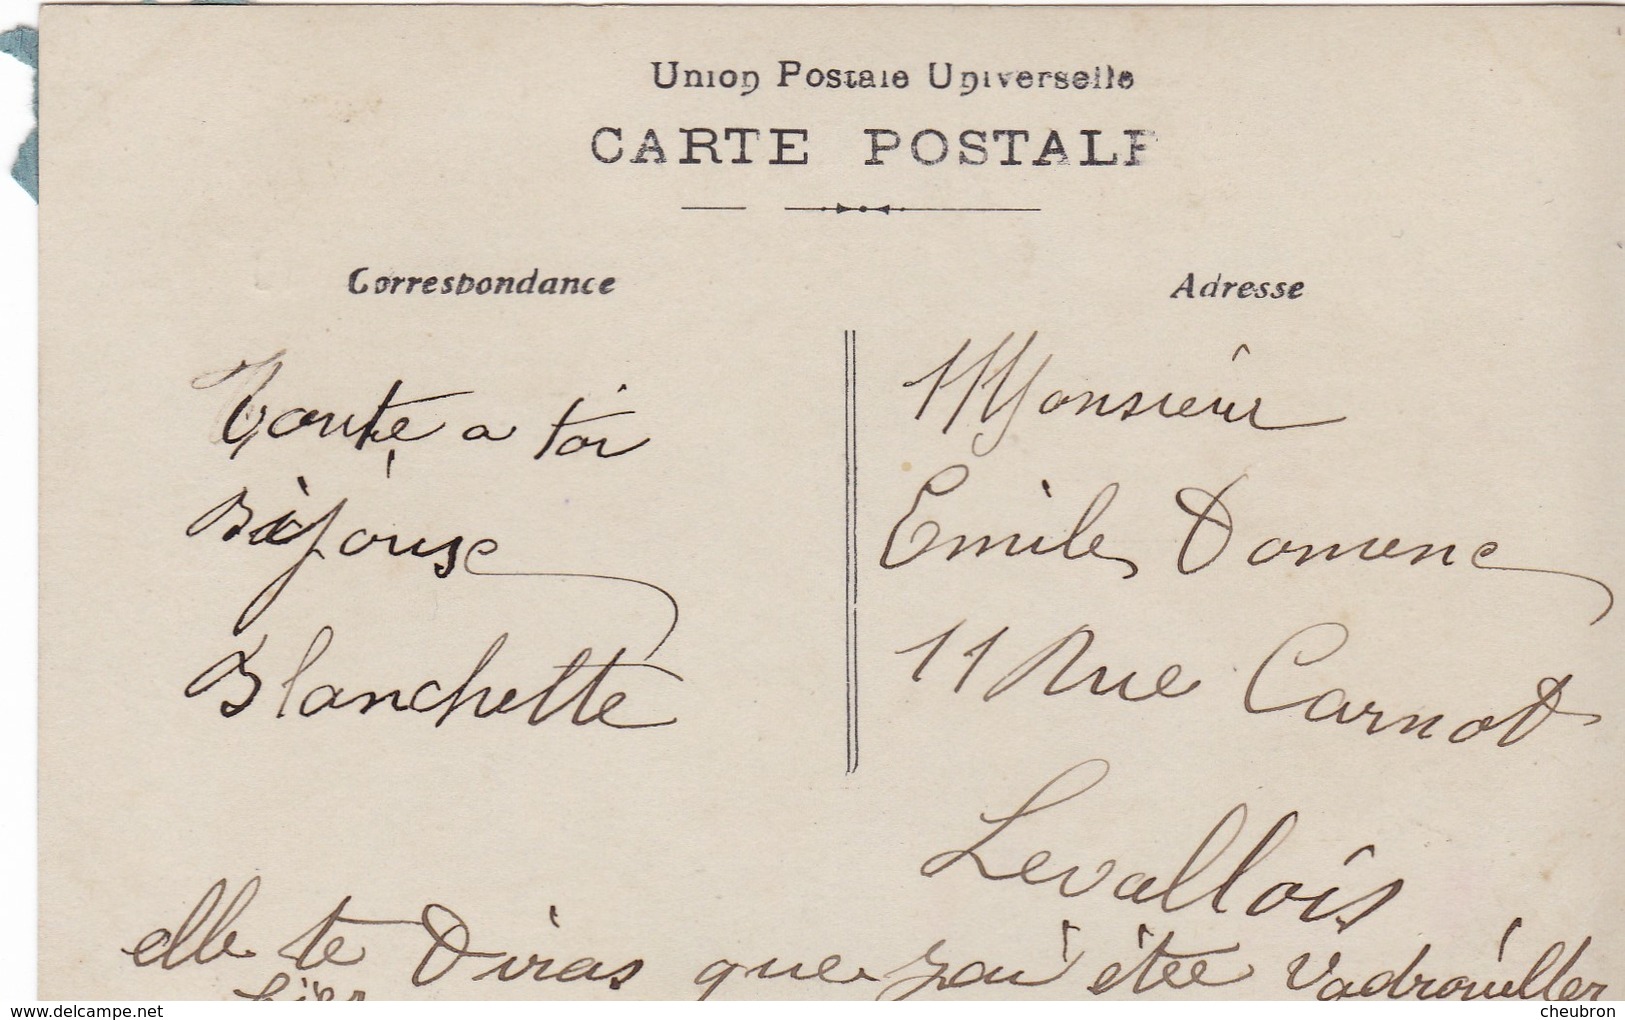 Union Postale Universelle
CARTE POSTALE
Correspondance
Adresse
Toute a toi
Bijouse
Blanchette
Monsieur
Emile Domenc
11 Rue Carnot
Levallois
elle te Diras que jai étée Vadrouiller
hier
delcampe.net
cheubron